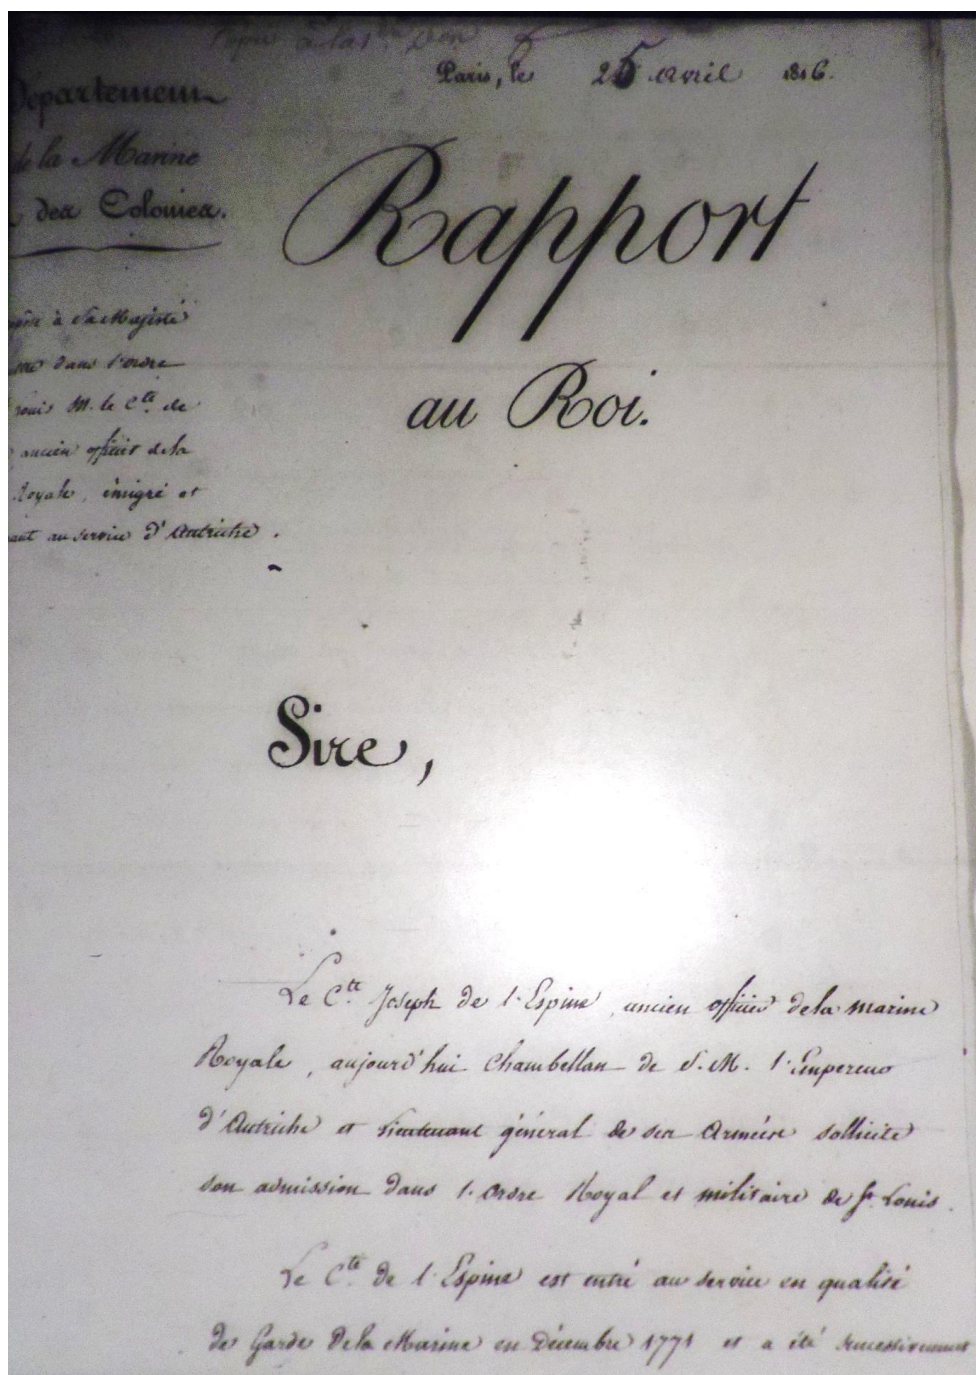 Paris, le 25 avril 1816.
Département
de la Marine
des Colonies.
Rapport
au Roi.
à Sa Majesté
dans l'ordre
M. le Cte. de
ancien officier de la
Royale, émigré et
au service d'Autriche.
Sire,
Le Cte. Joseph de l'Espine, ancien officier de la marine
Royale, aujourd'hui Chambellan de S. M. l'Empereur
d'Autriche et lieutenant général de ses Armées sollicite
son admission dans l'ordre Royal et militaire de St. Louis.
Le Cte. de l'Espine est entré au service en qualité
de Garde de la Marine en Décembre 1771 et a été successivement